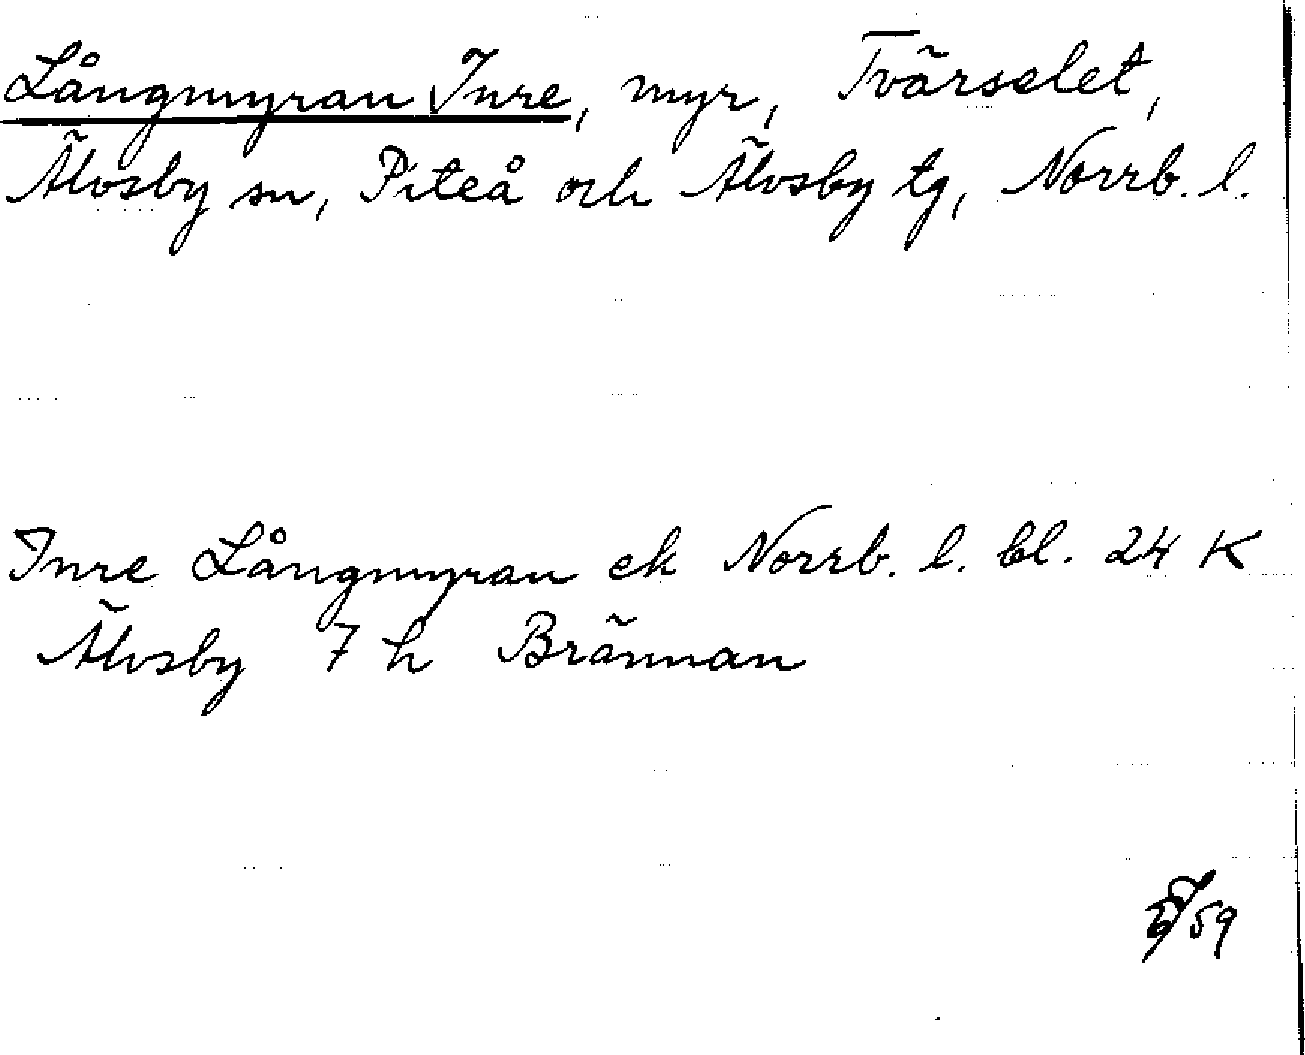 Långmyran Inre, myr, Tvärselet,
Älvsby sn, Piteå och Älvsby tg, Norrb. l.
Inre Långmyran ek Norrb. l. bl. 24 K
Älvsby 7 h Brännan
59